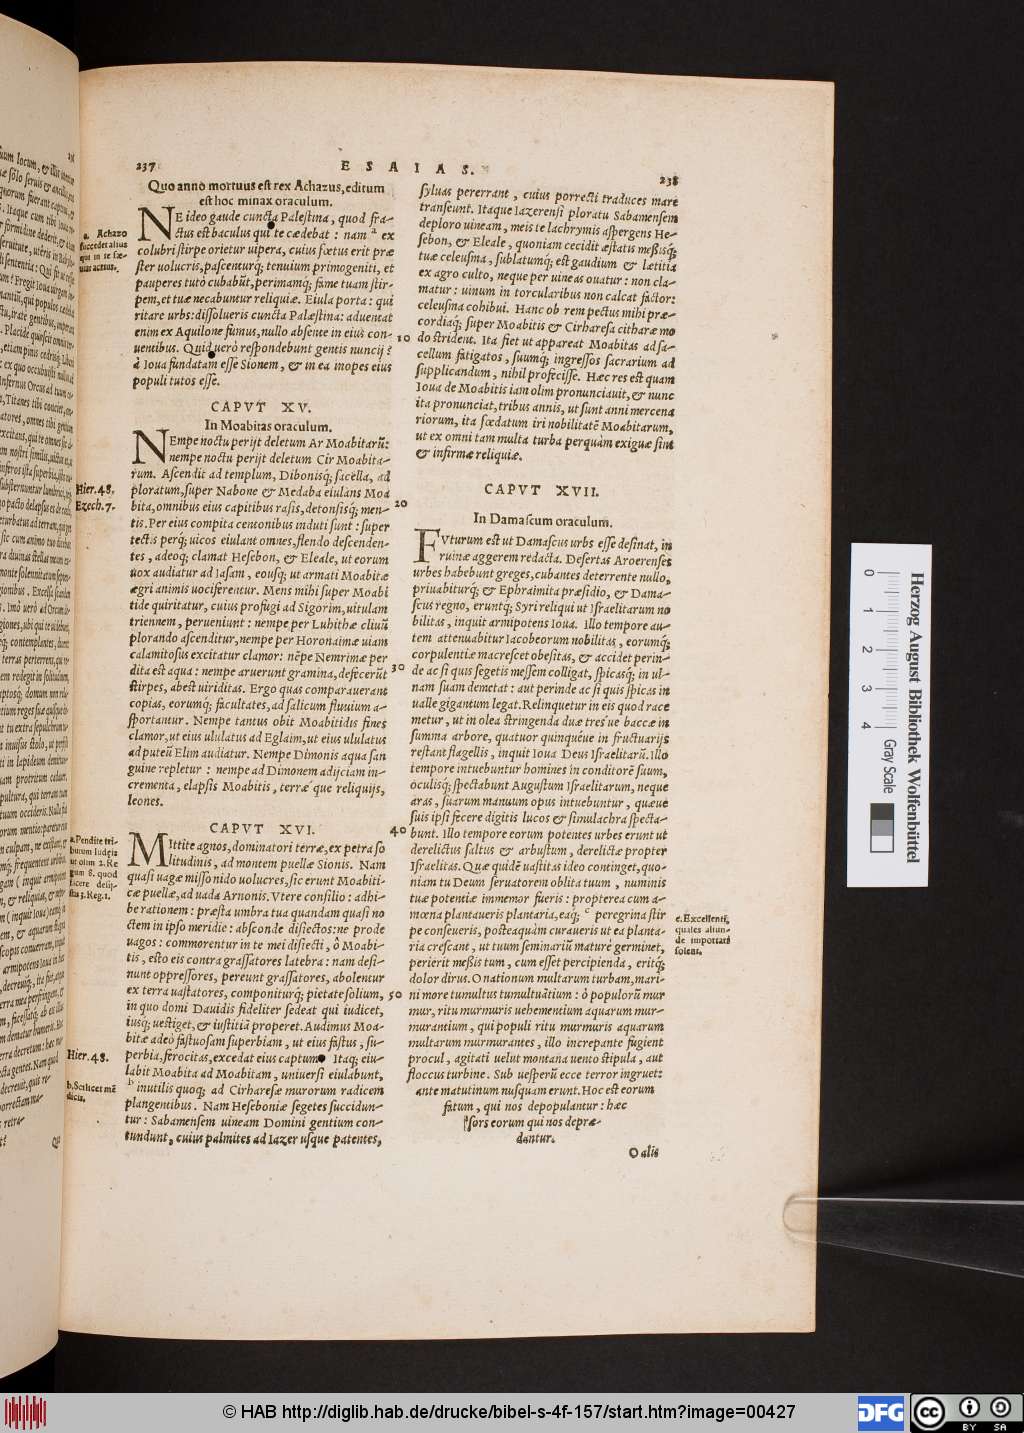 237
E S A I A S.
238
Quo anno mortuus est rex Achazus, editum
est hoc minax oraculum.
NE ideo gaude cuncta Palestina, quod fra-
ctus est baculus qui te cædebat : nam ᵃ ex
colubri stirpe orietur uipera, cuius fœtus erit præ
ster uolucris, pascenturq; tenuium primogeniti, et
pauperes tutò cubabūt, perimamq; fame tuam stir-
pem, et tuæ necabuntur reliquiæ. Eiula porta : qui
ritare urbs: dissolueris cuncta Palæstina: aduentat
enim ex Aquilone fumus, nullo absente in eius con-
uentibus. Quid uerò respondebunt gentis nuncij?
à Ioua fundatam esse Sionem, & in ea inopes eius
populi tutos esse.
a. Achazo
succedet alius
qui in te sæ-
uiat actius.
CAPVT XV.
In Moabitas oraculum.
NEmpe noctu perijt deletum Ar Moabitarū:
nempe noctu perijt deletum Cir Moabita-
rum. Ascendit ad templum, Dibonisq; sacella, ad
ploratum, super Nabone & Medaba eiulans Moa
bita, omnibus eius capitibus rasis, detonsisq; men-
tis. Per eius compita centonibus induti sunt : super
tectis perq; uicos eiulant omnes, flendo descenden-
tes, adeoq; clamat Hesebon, & Eleale, ut eorum
uox audiatur ad Iasam, eousq; ut armati Moabitæ
ægri animis uociferentur. Mens mihi super Moabi
tide quiritatur, cuius profugi ad Sigorim, uitulam
triennem, perueniunt : nempe per Luhithæ cliuū
plorando ascenditur, nempe per Horonaimæ uiam
calamitosus excitatur clamor: nēpe Nemrimæ per
dita est aqua : nempe aruerunt gramina, defecerūt
stirpes, abest uiriditas. Ergo quas comparauerant
copias, eorumq; facultates, ad salicum fluuium a-
sportantur. Nempe tantus obit Moabitidis fines
clamor, ut eius ululatus ad Eglaim, ut eius ululatus
ad puteū Elim audiatur. Nempe Dimonis aqua san
guine repletur : nempe ad Dimonem adijciam in-
crementa, elapsis Moabitis, terræ que reliquijs,
leones.
Hier. 48.
Ezech. 7.
CAPVT XVI.
MIttite agnos, dominatori terræ, ex petra so
litudinis, ad montem puellæ Sionis. Nam
quasi uagæ misso nido uolucres, sic erunt Moabiti-
cæ puellæ, ad uada Arnonis. Vtere consilio : adhi-
be rationem : præsta umbra tua quandam quasi no
ctem in ipso meridie : absconde disiectos: ne prode
uagos : commorentur in te mei disiecti, ô Moabi-
tis, esto eis contra grassatores latebra : nam desi-
nunt oppressores, pereunt grassatores, abolentur
ex terra uastatores, componiturq; pietate solium,
in quo domi Dauidis fideliter sedeat qui iudicet,
iusq; uestiget, & iustitiā properet. Audimus Moa-
bitæ adeò fastuosam superbiam, ut eius fastus, su-
perbia, ferocitas, excedat eius captum. Itaq; eiu-
labit Moabita ad Moabitam, uniuersi eiulabunt,
ᵇ inutilis quoq; ad Cirharesæ murorum radicem
plangentibus. Nam Heseboniæ segetes succidun-
tur : Sabamensem uineam Domini gentium con-
tundunt, cuius palmites ad Iazer usque patentes,
a. Pendite tri-
butum Iudæis
ut olim 2. Re
gum 8. quod
facere desij-
stis 3. Reg. 1.
Hier. 48.
b. Scilicet mē
dacia.
10
20
30
40
50
syluas pererrant, cuius porrecti traduces mare
transeunt. Itaque Iazerensi ploratu Sabamensem
deploro uineam, meis te lachrymis aspergens He-
sebon, & Eleale, quoniam cecidit æstatis messisq;
tuæ celeusma, sublatumq; est gaudium & lætitia
ex agro culto, neque per uineas ouatur : non cla-
matur : uinum in torcularibus non calcat factor:
celeusma cohibui. Hanc ob rem pectus mihi præ-
cordiaq; super Moabitis & Cirharesa citharæ mo
do strident. Ita fiet ut appareat Moabitas ad sa-
cellum fatigatos, suumq; ingressos sacrarium ad
supplicandum, nihil profecisse. Hæc res est quam
Ioua de Moabitis iam olim pronunciauit, & nunc
ita pronunciat, tribus annis, ut sunt anni mercena
riorum, ita fœdatum iri nobilitatē Moabitarum,
ut ex omni tam multa turba perquàm exiguæ sint
& infirmæ reliquiæ.
CAPVT XVII.
In Damascum oraculum.
FVturum est ut Damascus urbs esse desinat, in
ruinæ aggerem redacta. Desertas Aroerenses
urbes habebunt greges, cubantes deterrente nullo,
priuabiturq; & Ephraimita præsidio, & Dama-
scus regno, eruntq; Syri reliqui ut Israelitarum no
bilitas, inquit armipotens Ioua. Illo tempore au-
tem attenuabitur Iacobeorum nobilitas, eorumq;
corpulentiæ macrescet obesitas, & accidet perin-
de ac si quis segetis messem colligat, spicasq; in ul-
nam suam demetat : aut perinde ac si quis spicas in
ualle gigantum legat. Relinquetur in eis quod race
metur, ut in olea stringenda duæ tres ue baccæ in
summa arbore, quatuor quinquéue in fructuarijs
restant flagellis, inquit Ioua Deus Israelitarū. Illo
tempore intuebuntur homines in conditorē suum,
oculisq; spectabunt Augustum Israelitarum, neque
aras, suarum manuum opus intuebuntur, quæue
suis ipsi fecere digitis lucos & simulachra specta-
bunt. Illo tempore eorum potentes urbes erunt ut
derelictus saltus & arbustum, derelictæ propter
Israelitas. Quæ quidē uastitas ideo continget, quo-
niam tu Deum seruatorem oblita tuum, numinis
tuæ potentiæ immemor fueris : propterea cum a-
mœna plantaueris plantaria, eáq; ᶜ peregrina stir
pe conseueris, posteaquàm curaueris ut ea planta-
ria crescant, ut tuum seminariū maturè germinet,
perierit messis tum, cum esset percipienda, eritq;
dolor dirus. O nationum multarum turbam, mari-
ni more tumultus tumultuātium : ô populorū mur
mur, ritu murmuris uehementium aquarum mur-
murantium, qui populi ritu murmuris aquarum
multarum murmurantes, illo increpante fugient
procul, agitati uelut montana uento stipula, aut
floccus turbine. Sub uesperū ecce terror ingruet:
ante matutinum nusquam erunt. Hoc est eorum
fatum, qui nos depopulantur : hæc
sors eorum qui nos depræ-
dantur.
c. Excellenti,
quales aliun-
de importari
solent.
O alis
© HAB http://diglib.hab.de/drucke/bibel-s-4f-157/start.htm?image=00427
Herzog August Bibliothek Wolfenbüttel
0 1 2 3 4
Gray Scale
DFG
cc BY SA